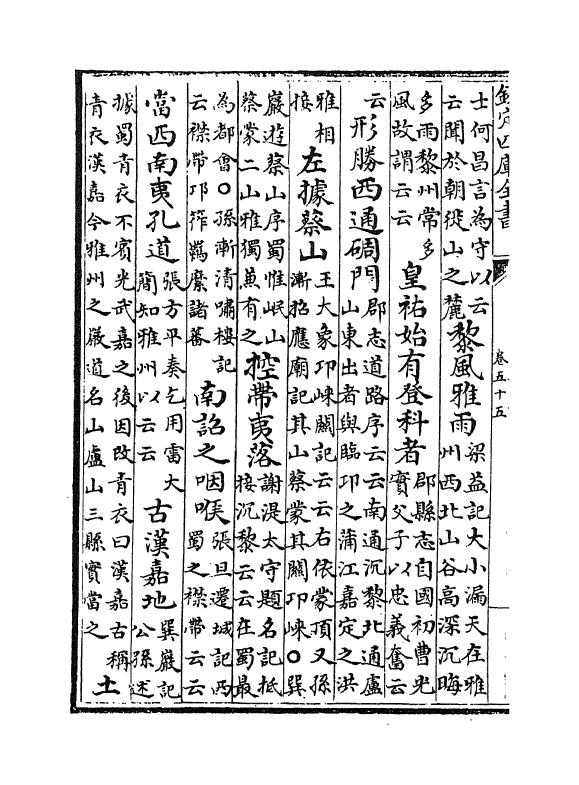 欽定四庫全書
卷五十五
士何昌言為守以云云聞於朝從山之麓黎風雅雨梁益記大小漏天在雅州西北山谷高深沉晦
多雨黎州常多風故謂云云皇祐始有登科者郡縣志自國初曹光實父子以忠義奮云
云形勝西通碉門郡志道路序云云南通沉黎北通盧山東出者與臨卭之蒲江嘉定之洪
雅相接左據蔡山王大象卭崍關記云云右依蒙頂又孫漸招應廟記其山蔡蒙其關卭崍〇巽
巖遊蔡山序蜀惟岷山蔡蒙二山雅獨兼有之控帶夷落謝湜太守題名記抵接沉黎云云在蜀最
為都會〇孫漸清嘯樓記云襟帶卭筰羈縻諸蕃南詔之咽喉張旦遷城記西蜀之襟帶云云
當西南夷孔道張方平奏乞用雷大簡知雅州以云云古漢嘉地巽巖記公孫述
據蜀青衣不賓光武嘉之後因改青衣曰漢嘉古稱青衣漢嘉今雅州之嚴道名山盧山三縣實當之土